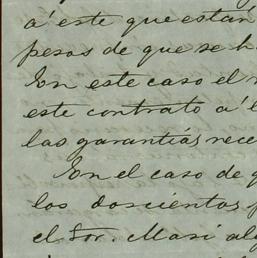 a' este que están
pesos de que se h
En este caso el
este contrato a'
las garantiás rece
En el caso de
los doscientos
el Sor. Masi al